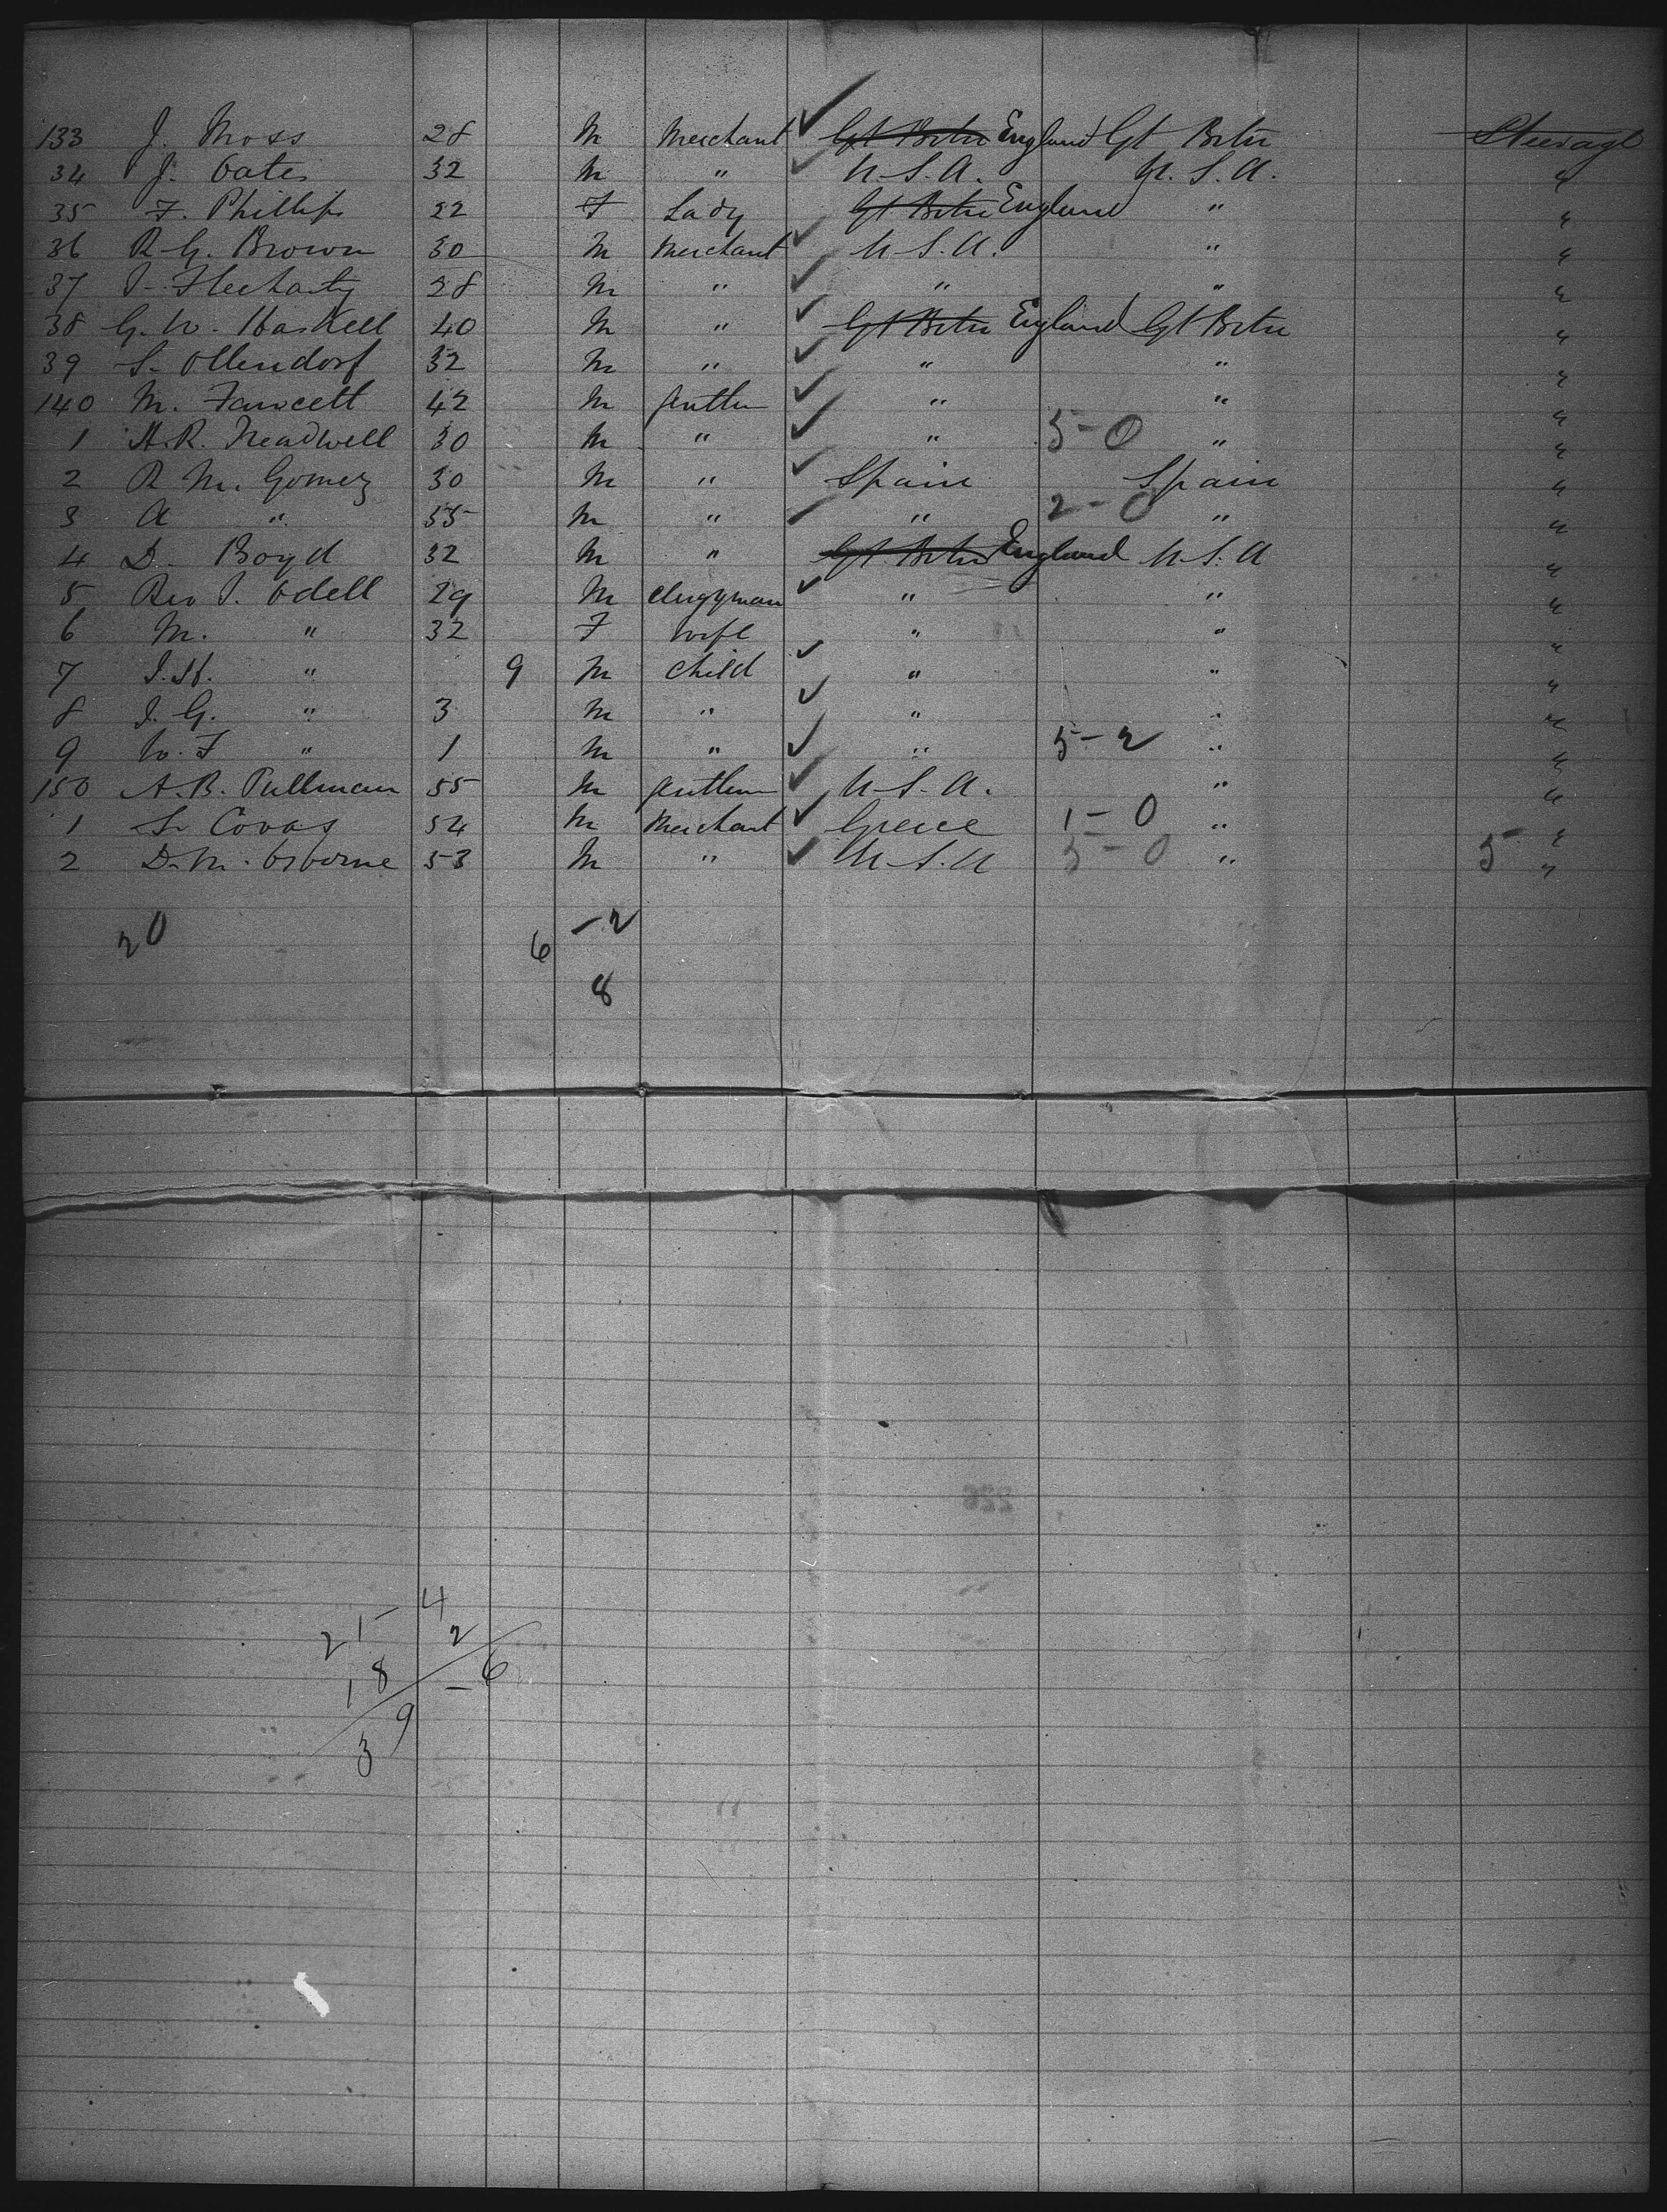 133 J. Moss 28 M Merchant ✓ Gt Britn England Gt Britn Steerage
34 J. Oates 32 M " ✓ U.S.A. U.S.A. "
35 F. Phillips 22 F Lady Gt Britn England " "
36 R. G. Brown 30 M Merchant ✓ U.S.A. " "
37 28 M " ✓ " " "
38 G. W. Haskell 40 M " ✓ Gt Britn England Gt Britn "
39 S. Ollendorf 32 M " ✓ " " "
140 M. Fawcett 42 M Gentln ✓ " " "
1 H.R. Treadwell 30 M " ✓ " 5-0 " "
2 R M. Gomez 30 M " ✓ Spain Spain "
3 A " 55 M " ✓ " 2-0 " "
4 D. Boyd 32 M " Gt Britn England U.S.A "
5 Rev J. Odell 29 M Clergyman ✓ " " "
6 M. " 32 F Wife " " "
7 J.H. " 9 M Child ✓ " " "
8 J. G. " 3 M " ✓ " " "
9 W. F " 1 M " ✓ " 5-2 " "
150 A.B. Pullman 55 M Gentlem ✓ U.S.A. " "
1 S. Covas 54 M Merchant ✓ Greece 1-0 " "
2 D. M. Osborne 53 M " ✓ U.S.A 5-0 " 5 "
20 6 -2
8
21-4
18 2
39 -6